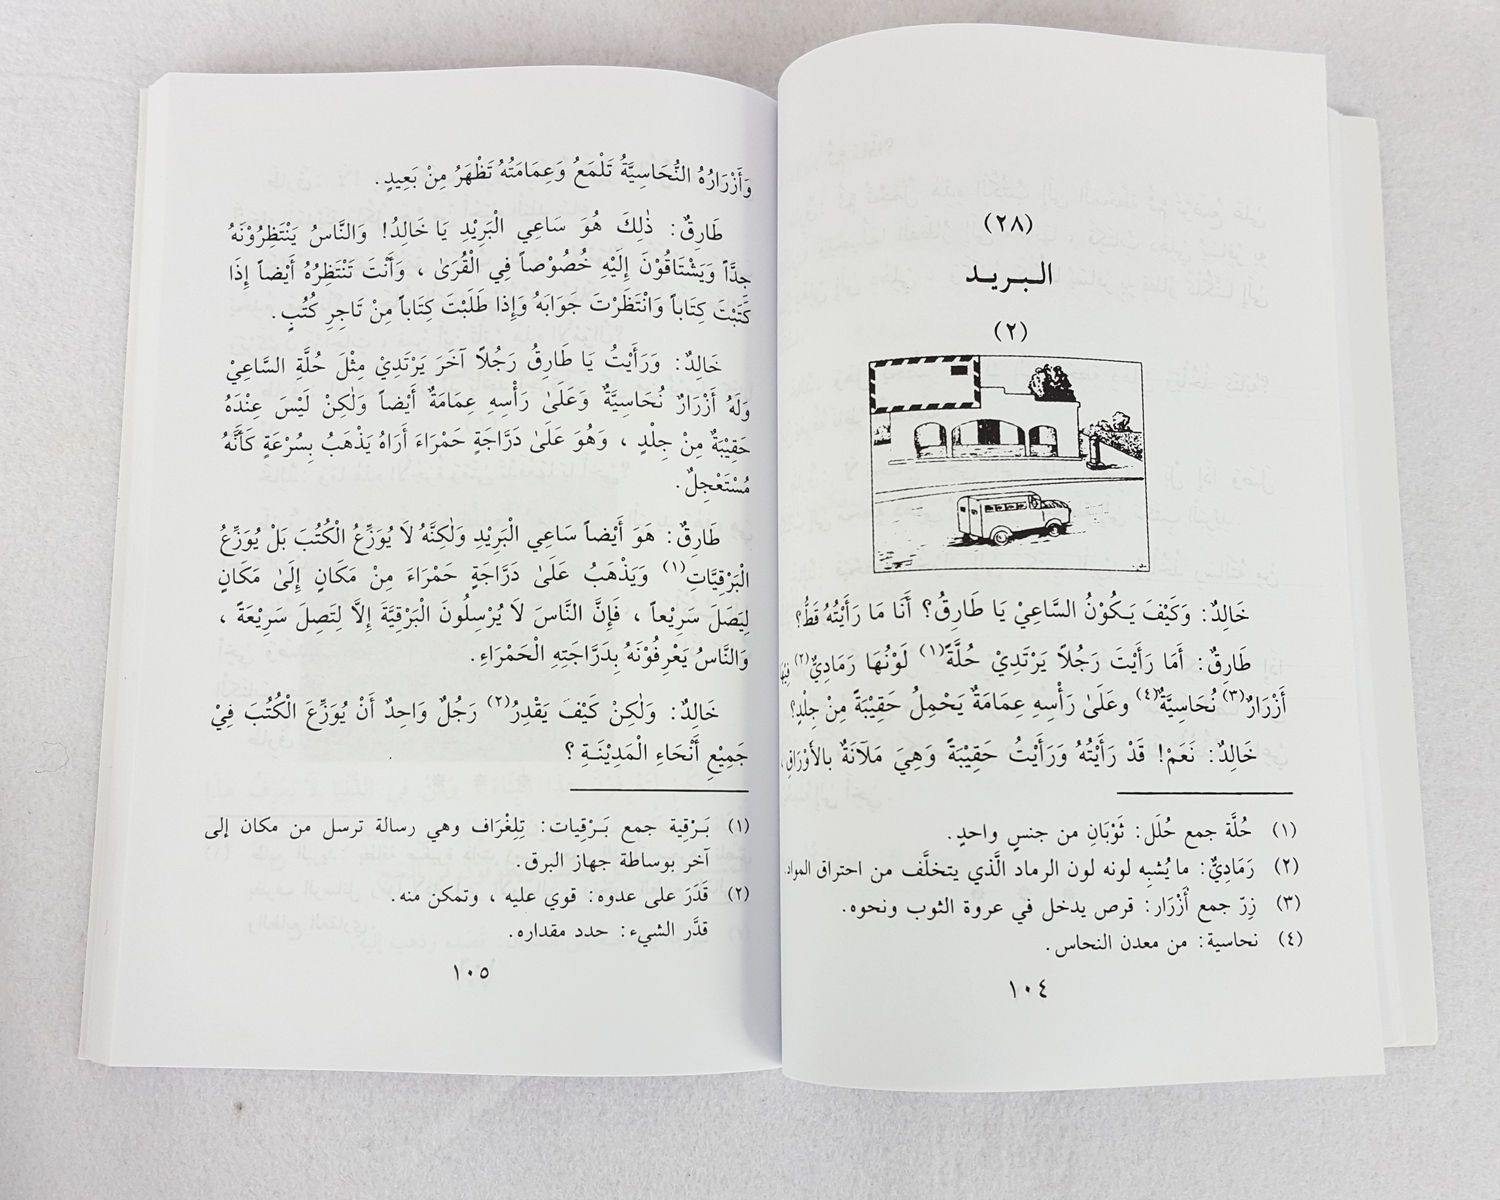 (٢٨)
الـبـريـد
(٢)
خَالِدٌ: وَكَيْفَ يَـكُوْنُ السَّاعِيْ يَا طَارِقُ؟ أَنَا مَا رَأَيْتُهُ قَطُّ؟
طَارِقٌ: أَمَا رَأَيْتَ رَجُلاً يَرْتَدِيْ حُلَّةً(١) لَوْنُهَا رَمَادِيٌّ(٢) فِيْهَا
أَزْرَارٌ(٣) نُحَاسِيَّةٌ(٤) وعَلَىٰ رَأْسِهِ عِمَامَةٌ يَحْمِلُ حَقِيْبَةً مِنْ جِلْدٍ؟
خَالِدٌ: نَعَمْ! قَدْ رَأَيْتُهُ وَرَأَيْتُ حَقِيْبَةً وَهِيَ مَلآنَةٌ بالأَوْرَاقِ،
(١) حُلَّة جمع حُلَل: ثَوْبَانِ من جنسٍ واحدٍ.
(٢) رَمَادِيٌّ: ما يُشبِه لونه لون الرماد الَّذي يتخلَّف من احتراق المواد.
(٣) زِرّ جمع أَزْرَار: قرص يدخل في عروة الثوب ونحوه.
(٤) نحاسية: من معدن النحاس.
١٠٤
وَأَزْرَارُهُ النُّحَاسِيَّةُ تَلْمَعُ وَعِمَامَتُهُ تَظْهَرُ مِنْ بَعِيدٍ.
طَارِقٌ: ذٰلِكَ هُوَ سَاعِي الْبَرِيْدِ يَا خَالِدُ! وَالنَّاسُ يَنْتَظِرُوْنَهُ
جِدَّاً وَيَشْتَاقُوْنَ إِلَيْهِ خُصُوْصاً فِي الْقُرَىٰ ، وَأَنْتَ تَنْتَظِرُهُ أَيْضاً إِذَا
كَتَبْتَ كِتَاباً وَانْتَظَرْتَ جَوَابَهُ وَإِذا طَلَبْتَ كِتَاباً مِنْ تَاجِرِ كُتُبٍ.
خَالِدٌ: وَرَأَيْتُ يَا طَارِقُ رَجُلاً آخَرَ يَرْتَدِيْ مِثْلَ حُلَّةِ السَّاعِيْ
وَلَهُ أَزْرَارٌ نُحَاسِيَّةٌ وَعَلَىٰ رَأْسِهِ عِمَامَةٌ أَيْضاً وَلٰكِنْ لَيْسَ عِنْدَهُ
حَقِيْبَةٌ مِنْ جِلْدٍ ، وَهُوَ عَلَىٰ دَرَّاجَةٍ حَمْرَاءَ أَرَاهُ يَذْهَبُ بِسُرْعَةٍ كَأَنَّهُ
مُسْتَعْجِلٌ.
طَارِقٌ: هَوَ أَيْضاً سَاعِي الْبَرِيْدِ وَلٰكِنَّهُ لاَ يُوَزِّعُ الْكُتُبَ بَلْ يُوَزِّعُ
الْبَرْقِيَّاتِ(١) وَيَذْهَبُ عَلَىٰ دَرَّاجَةٍ حَمْرَاءَ مِنْ مَكَانٍ إِلَىٰ مَكَانٍ
لِيَصَلَ سَرِيْعاً ، فَإِنَّ النَّاسَ لاَ يُرْسِلُونَ الْبَرْقِيَّةَ إِلاَّ لِتَصِلَ سَرِيْعَةً ،
وَالنَّاسُ يَعْرِفُوْنَهُ بِدَرَّاجَتِهِ الْحَمْرَاءِ.
خَالِدٌ: وَلٰكِنْ كَيْفَ يَقْدِرُ(٢) رَجُلٌ وَاحِدٌ أَنْ يُوَزِّعَ الْكُتُبَ فِيْ
جَمِيْعِ أَنْحَاءِ الْمَدِيْنَـةِ ؟
(١) بَـرْقِية جمع بَـرْقِيات: تِلِغْرَاف وهي رسالة ترسل من مكان إلى
آخر بوساطة جهاز البرق.
(٢) قَدَرَ على عدوه: قوي عليه ، وتمكن منه.
قدَّر الشيء: حدد مقداره.
١٠٥